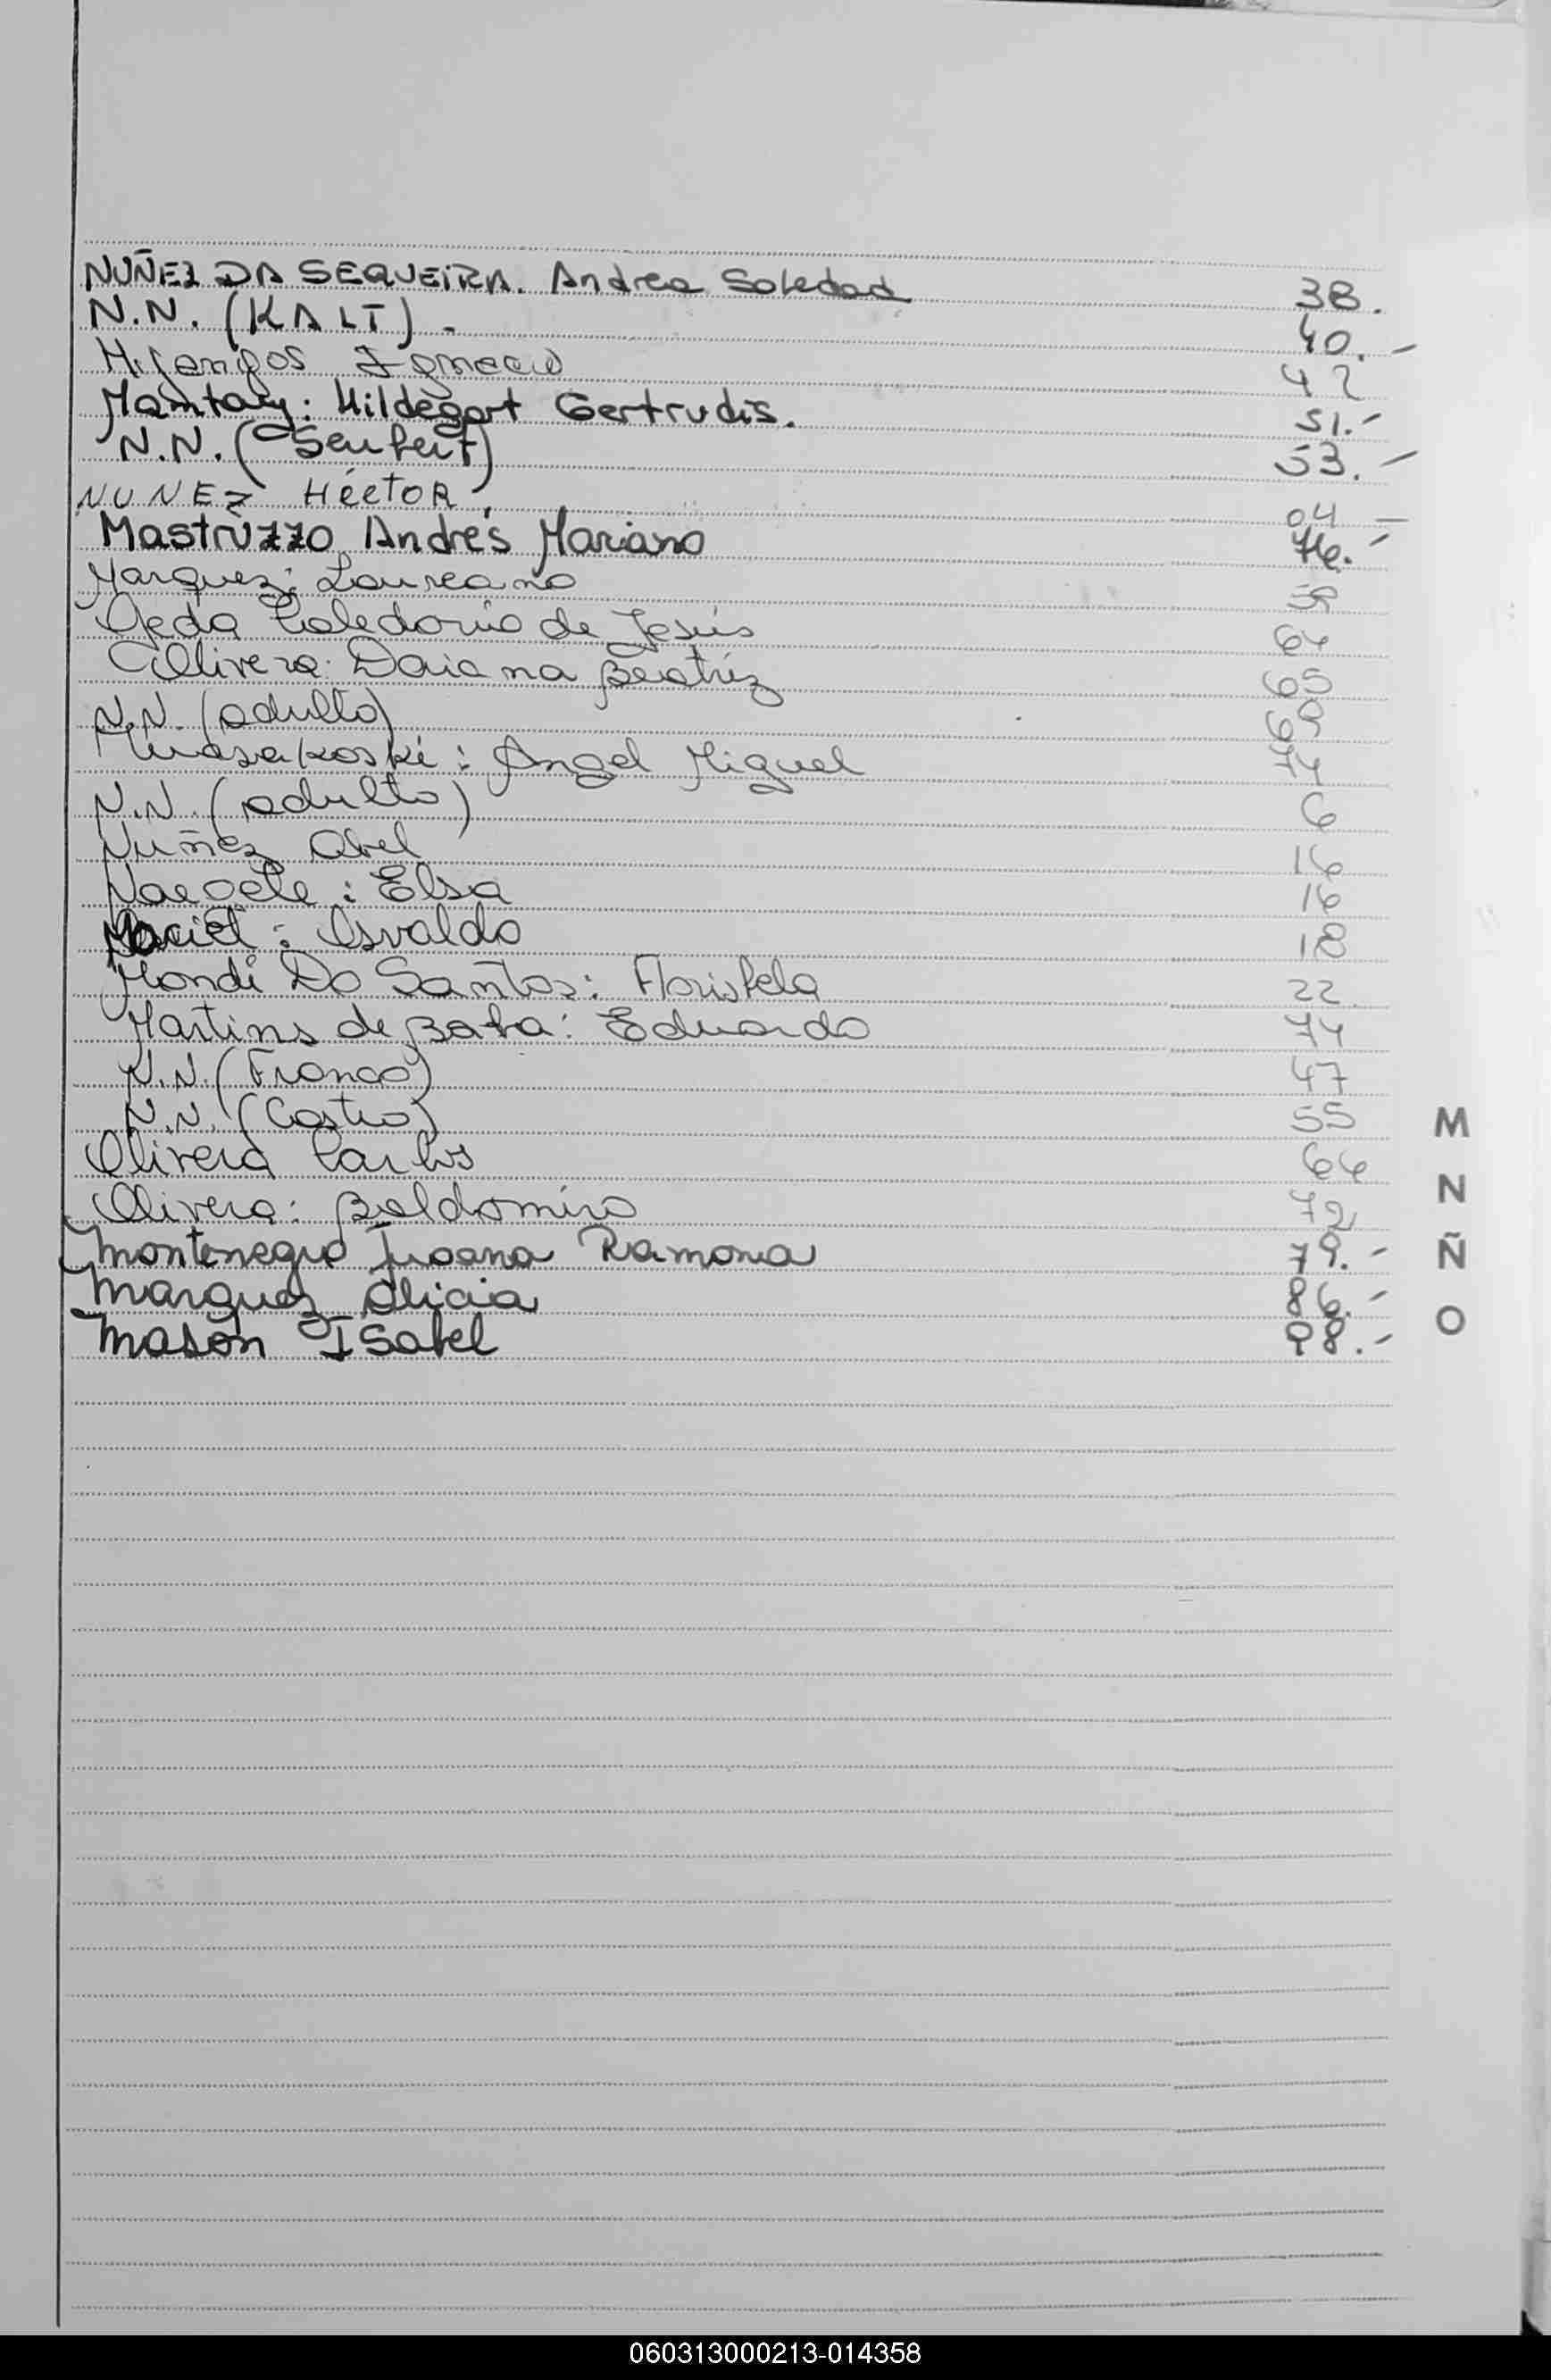 NUÑEZ DA SEQUEIRA. Andrea Soledad 38.
N.N. (KALT). - 40.-
Ignacio 42
Mantay: Hildegart Gertrudis. 51.-
N.N. (Seubert) 53.-
NUNEZ HéctoR. 04 -
Mastruzzo Andrés Mariano 46.-
Marquez: Laureano 59
Ojeda Celedonio de Jesús 64
Ollivera: Daiana Beatriz 65
N.N. (adulto) 69
Angel Miguel 74
N.N. (adulto) 6
Núñez Abel 16
Naegele: Elsa 16
Maciel: Osvaldo 18
Mondi Do Santos: Florisbela 22
Martins de : Eduardo 74
N.N. (Franco) 47
N.N. (Castro) 55
Olivera Carlos 64
Olivera: Baldomiro 72
Montenegro Juana Ramona 79.-
Marquez Alicia 86.-
Mason Isabel 98.-
M
N
Ñ
O
060313000213-014358